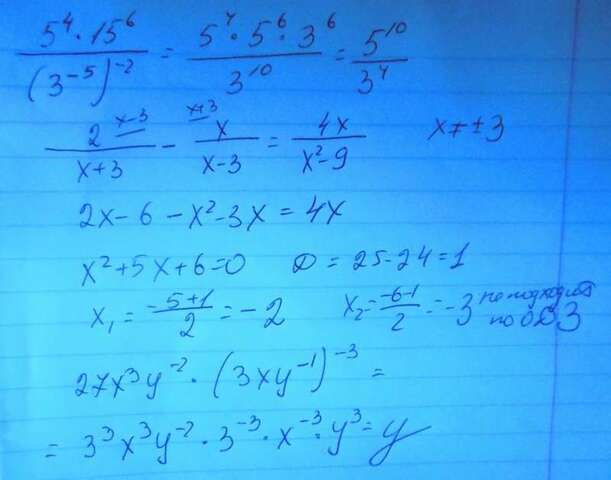 5⁴·15⁶/(3⁻⁵)⁻² = 5⁴·5⁶·3⁶/3¹⁰ = 5¹⁰/3⁴
2 x-3/(x+3) - x x+3/(x-3) = 4x/(x²-9) x≠±3
2x-6-x²-3x=4x
x²+5x+6=0 D=25-24=1
x₁=(-5+1)/2=-2 x₂=(-6-1)/2=-3 не подходит по ОДЗ
27x³y⁻²·(3xy⁻¹)⁻³=
=3³x³y⁻²·3⁻³·x⁻³·y³=y